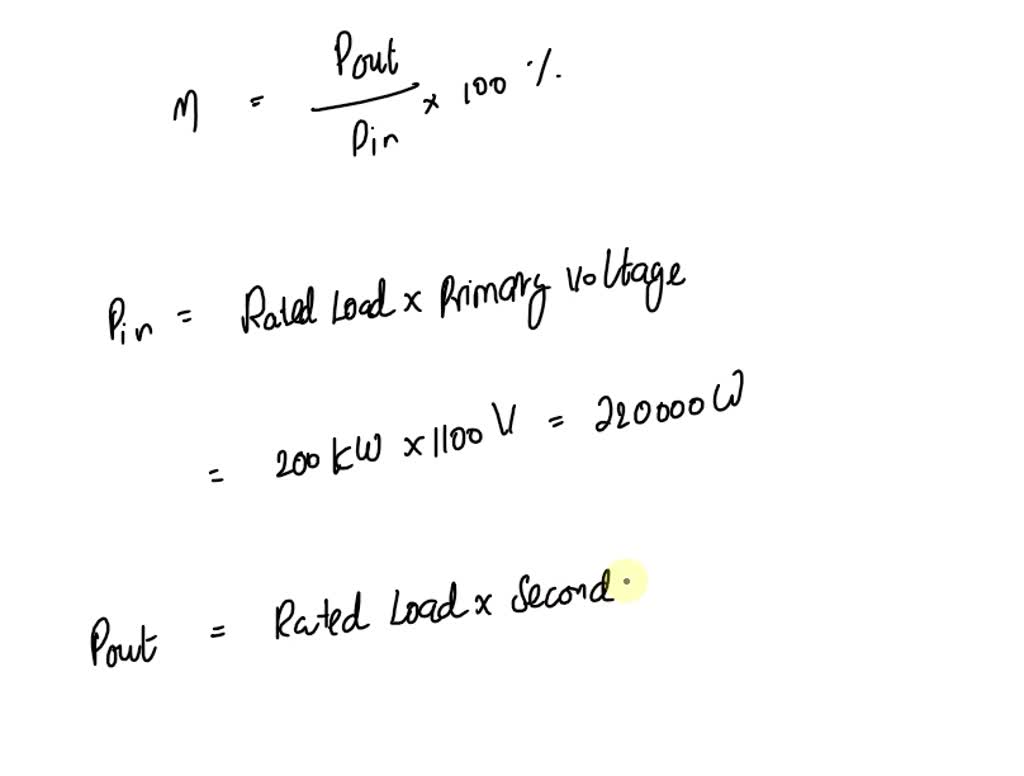 η = Pout / Pin × 100 %
Pin = Rated Load × Primary Voltage
= 200 kW × 1100 V = 220000 W
Pout = Rated Load × Second